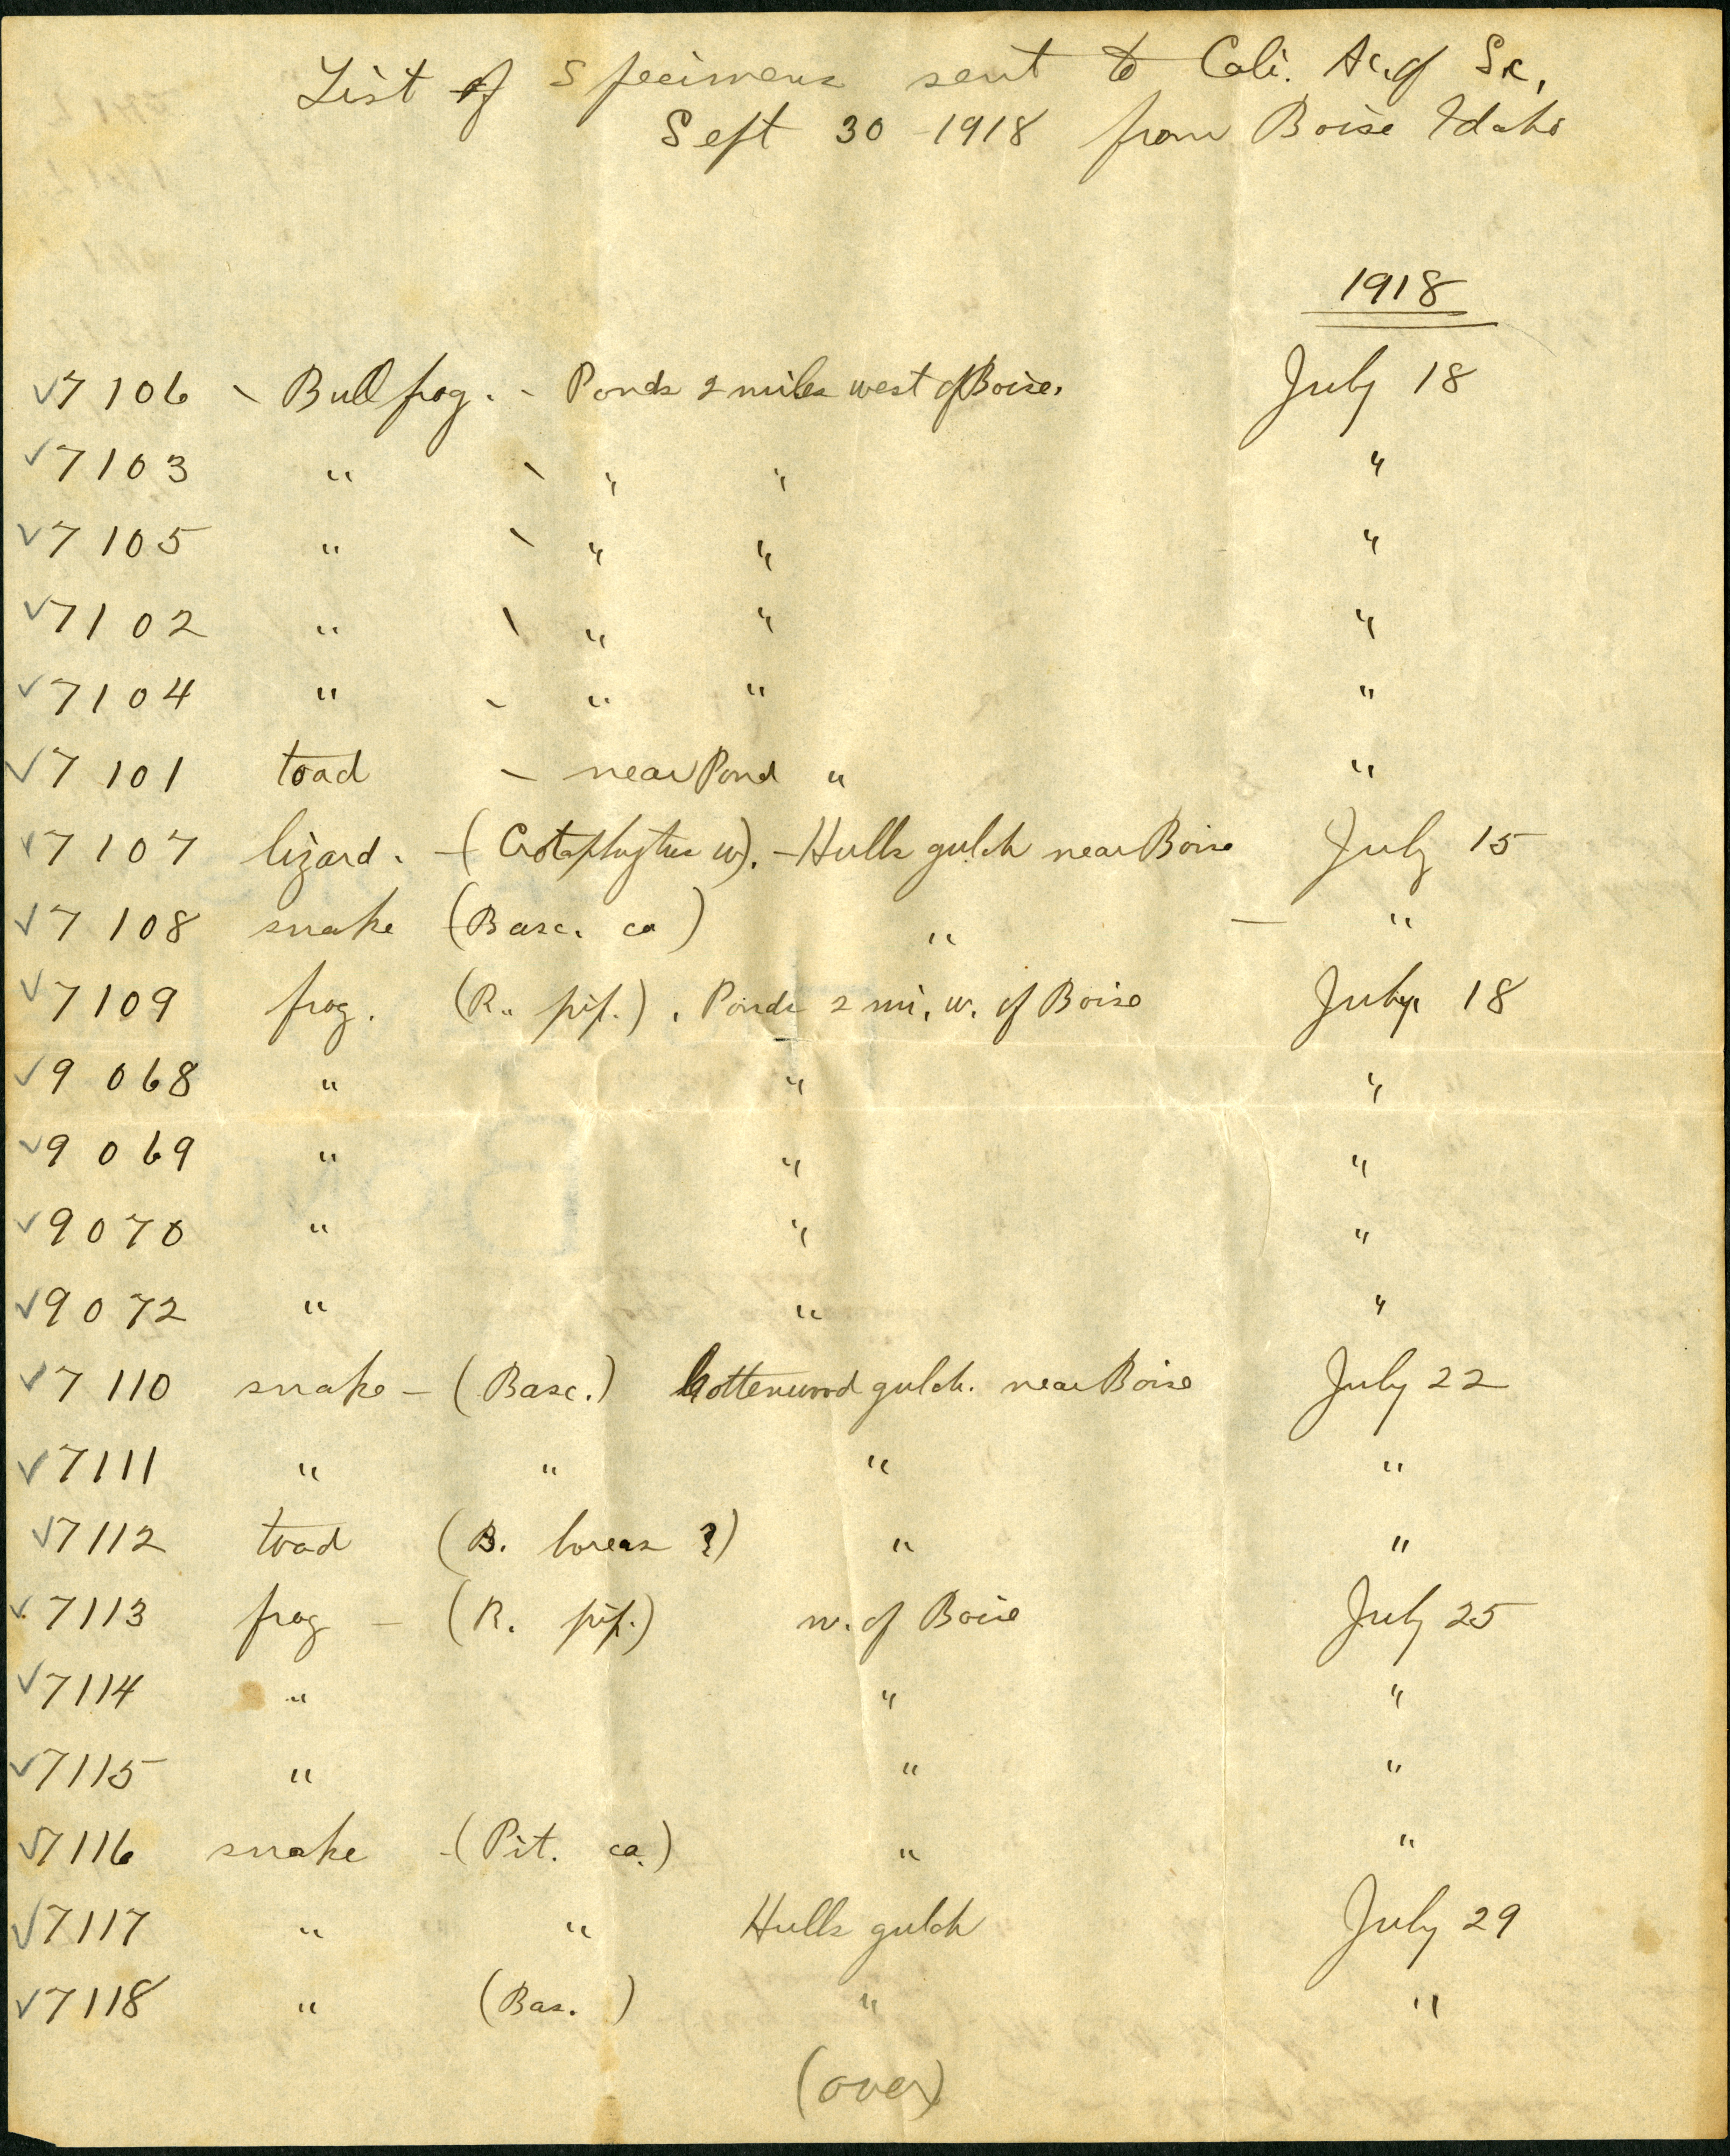 List of Specimens sent to Cali. Ac. of Sc.
Sept 30 - 1918 from Boise Idaho
1918
✓7106 - Bull frog. - Ponds 2 miles west of Boise. July 18
✓7103 " - " " "
✓7105 " - " " "
✓7102 " - " " "
✓7104 " - " " "
✓7101 toad - near Pond " "
✓7107 lizard. - (Crotaphytus w). - Hulls gulch near Boise July 15
✓7108 snake (Basc. ca) " — "
✓7109 frog. (R. pip.). Ponds 2 mi. w. of Boise July 18
✓9068 " " "
✓9069 " " "
✓9070 " " "
✓9072 " " "
✓7110 snake - (Basc.) Cottenwood gulch. near Boise July 22
✓7111 " " " "
✓7112 toad (B. boreas ?) " "
✓7113 frog - (R. pip.) w. of Boise July 25
✓7114 " " "
✓7115 " " "
✓7116 snake - (Pit. ca.) " "
✓7117 " " Hulls gulch July 29
✓7118 " (Bas. ) " "
(over)